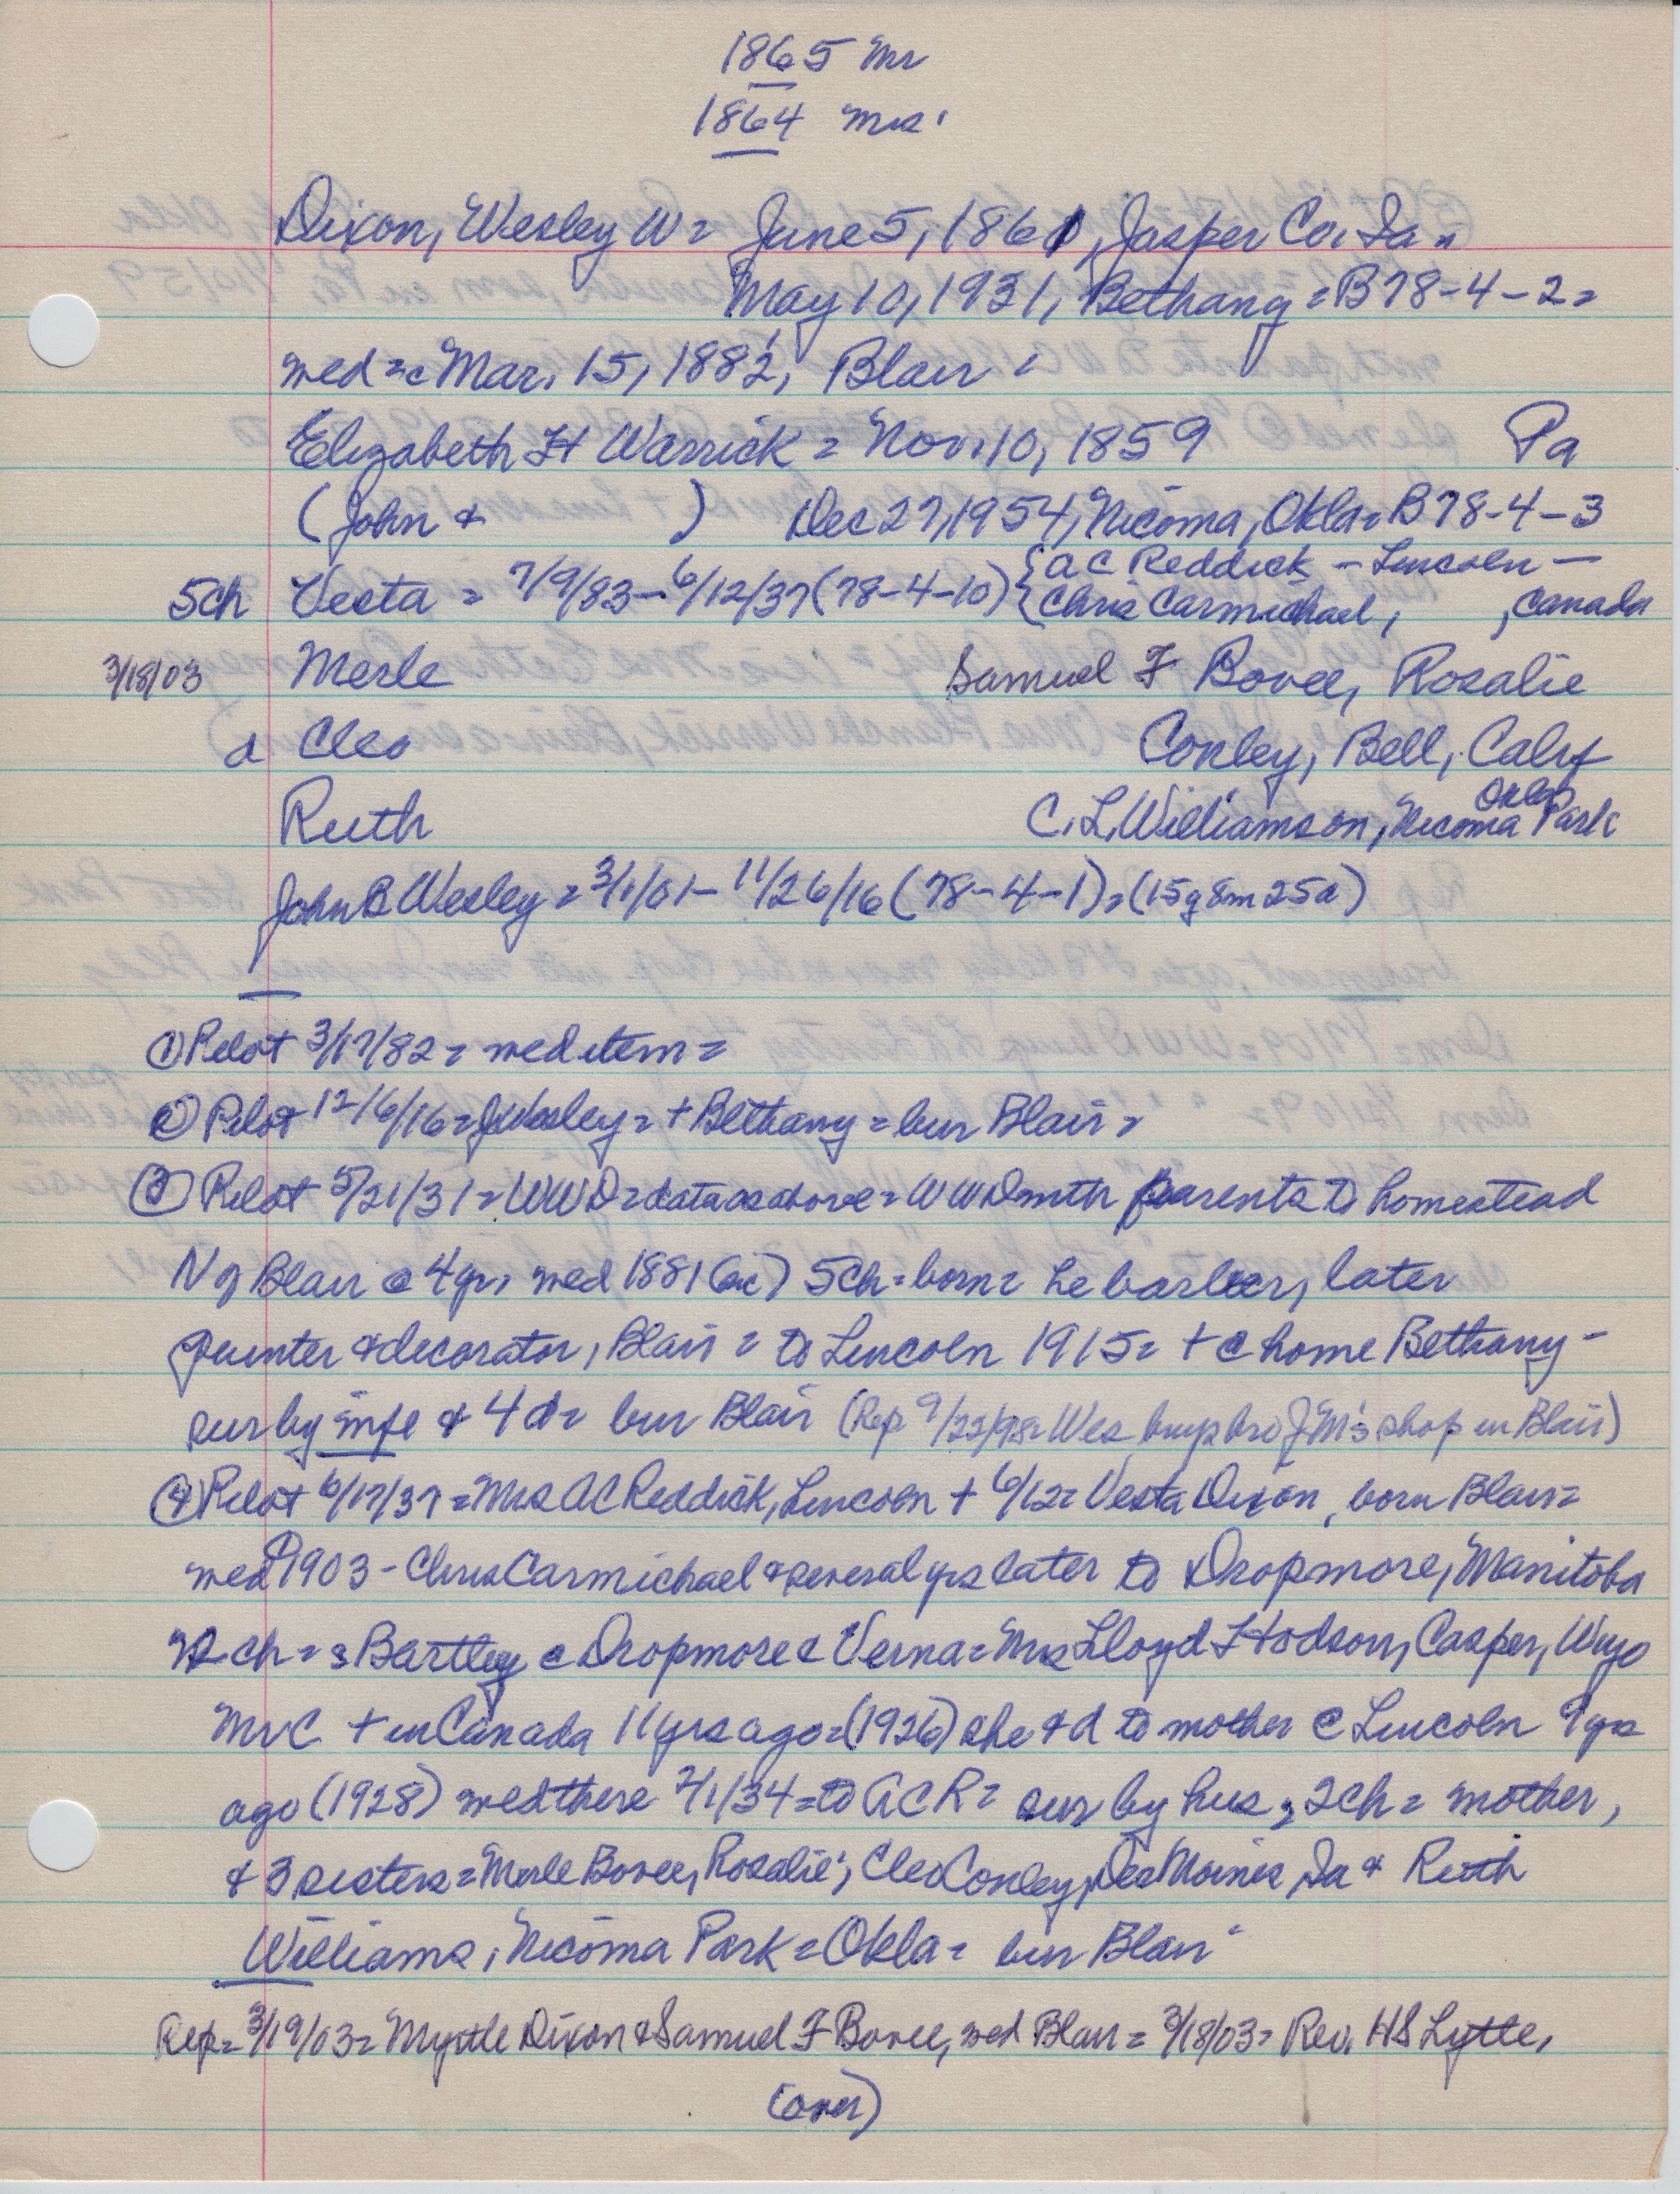 1865 Mr
1864 Mrs.
Dixon, Wesley W = June 5, 1861, Jasper Co, Ia =
May 10, 1931, Bethany = B78-4-2 =
med = c Mar. 15, 1882, Blair =
Elizabeth H Warrick = Nov. 10, 1859 Pa
(John & ) Dec 27, 1954, Nicoma, Okla = B78-4-3
5ch Vesta = 7/9/83 - 6/12/37 (78-4-10) { A C Reddick - Lincoln -
{ Chris Carmichael, , Canada
3/18/03 Merle Samuel F Bovee, Rosalie
d Cleo Conley, Bell, Calif
Ruth C. L. Williamson, Nicoma Park Okla
John B Wesley = 3/1/01 - 11/26/16 (78-4-1) = (15y 8m 25d)
① Pilot 3/17/82 = med item =
② Pilot 12/6/16 = J Wesley = + Bethany = bur Blair =
③ Pilot 5/21/31 = WWD = data as above = WWD with parents to homestead
N of Blair @ 4 yr, med 1881 (sic) 5ch = born = he barber, later
painter & decorator, Blair = to Lincoln 1915 = + @ home Bethany -
sur by wife & 4 d = bur Blair (Rep 9/22/98 = Wes buys bro J M's shop in Blair)
④ Pilot 6/17/37 = Mrs A C Reddick, Lincoln + 6/12 = Vesta Dixon, born Blair =
med ① 1903 - Chris Carmichael & several yrs later to Dropmore, Manitoba
2 ch = s Bartley @ Dropmore & Verna = Mrs Lloyd Hodson, Casper, Wyo
Mr C + in Canada 11 yrs ago = (1926) she & d to mother @ Lincoln 9 yrs
ago (1928) med there 7/1/34 = to ACR = sur by hus, 2ch = mother,
& 3 sisters = Merle Bovee, Rosalie; Cleo Conley, Des Moines, Ia & Ruth
Williams, Nicoma Park = Okla = bur Blair
Rep = 3/19/03 = Myrtle Dixon & Samuel F Bovee, med Blair = 3/18/03 = Rev. H S Lytle,
(over)